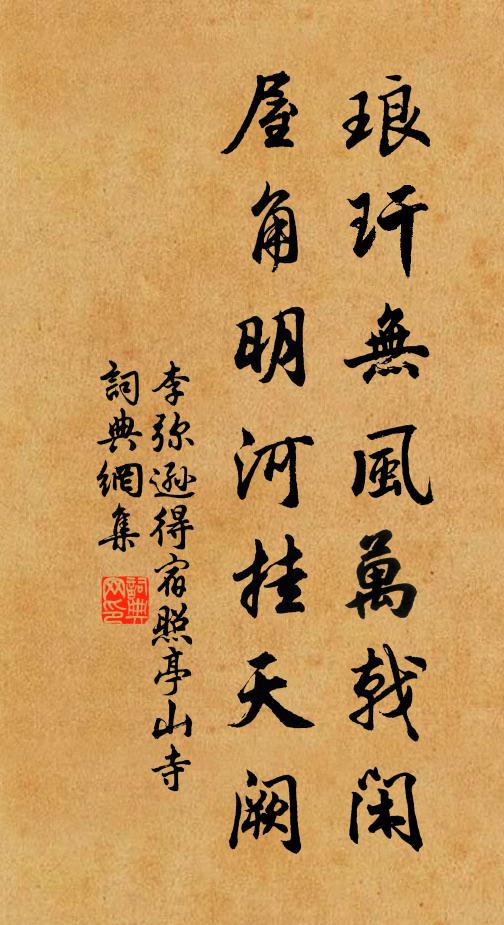 琅玕無風萬戟閑
屋角明河挂天闕
李弥遜得宿照亭山寺
詞典網集
詞典網印